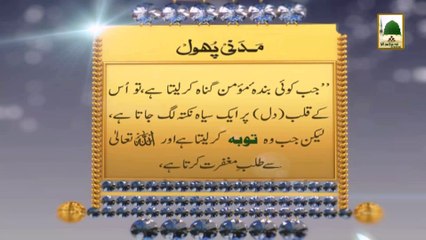 مدنی پھول
’’جب کوئی بندۂ مؤمن گناہ کرلیتا ہے، تو اُس
کے قلب (دل) پر ایک سیاہ نکتہ لگ جاتا ہے،
لیکن جب وہ توبہ کرلیتا ہے اور اللہ تعالیٰ
سے طلبِ مغفرت کرتا ہے،